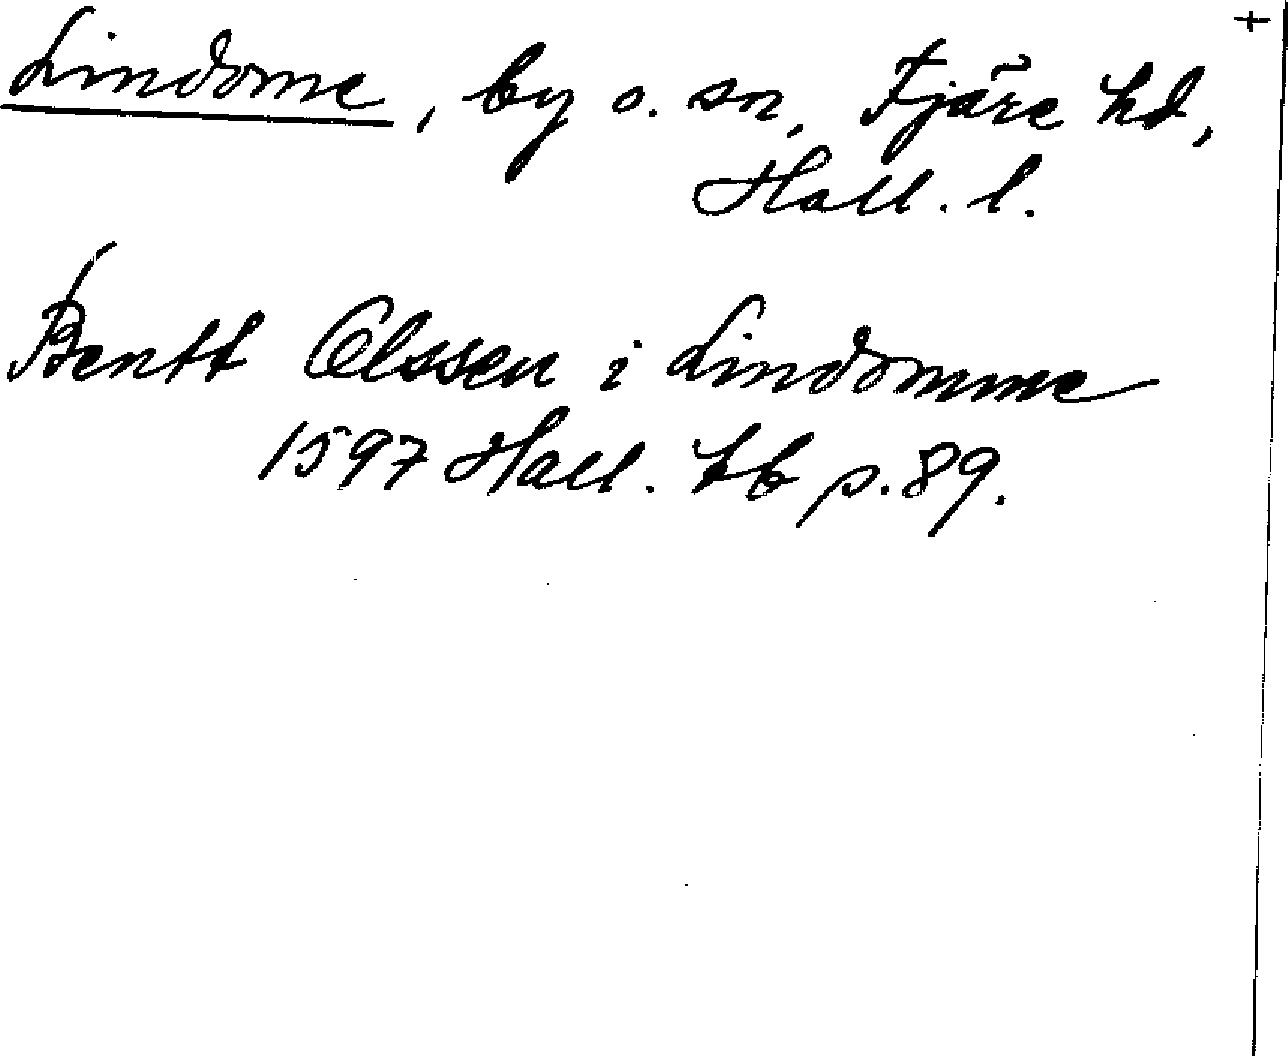 Lindome, by o. sn, Fjäre hd,
Hall. l.
Bentt Olssen i Lindomme
1597 Hall. tb p. 89.